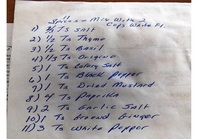 Spices - Mix With 2
Cups White Fl.
1) 2/3 Ts Salt
2) 1/2 Ts Thyme
3) 1/2 Ts Basil
4) 1/3 Ts Oregino
5) 1 Ts Celery Salt
6) 1 Ts Black Pepper
7) 1 Ts Dried Mustard
8) 4 Ts Paprika
9) 2 Ts Garlic Salt
10) 1 Ts Ground Ginger
11) 3 Ts White Pepper